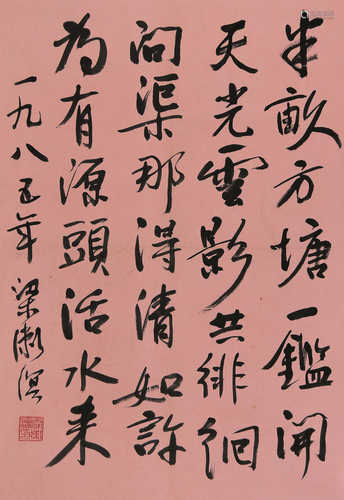 半畝方塘一鑑開
天光雲影共徘徊
問渠那得清如許
為有源頭活水来
一九八五年 梁漱溟